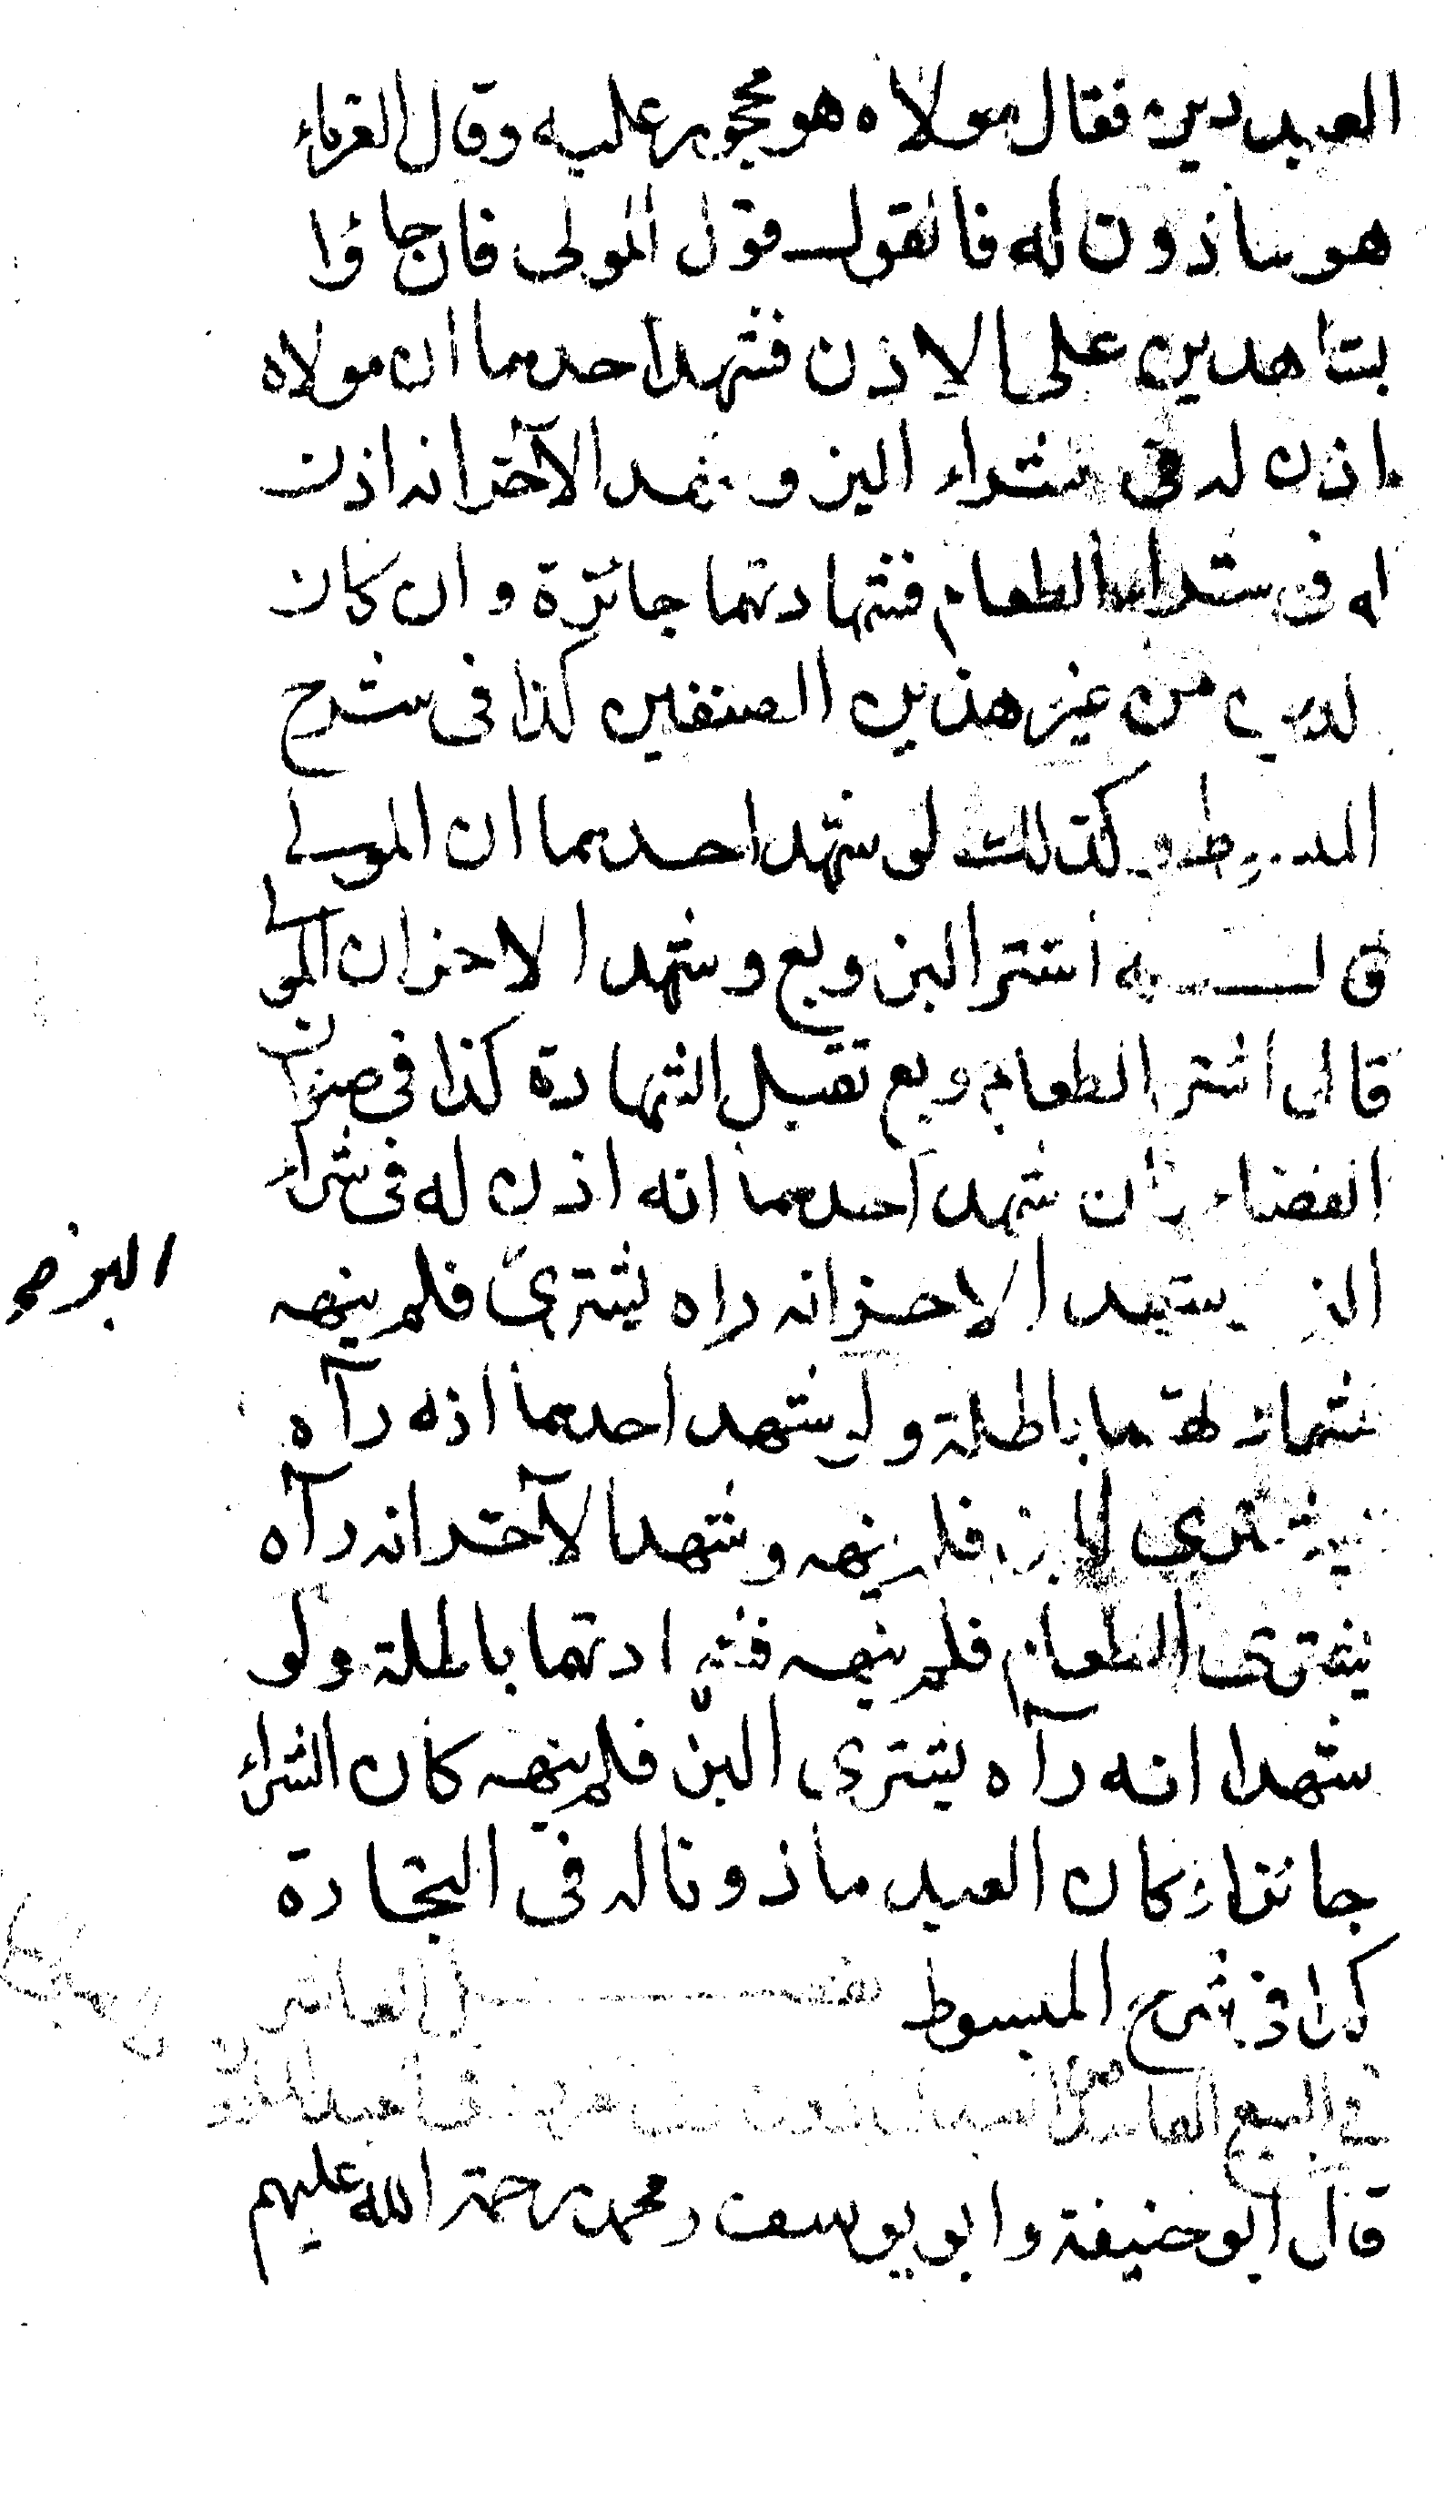 العبد دين فقال مولاه هو محجور عليه وقال الغرماء
هو ماذون له فالقول قول المولى فان جاؤا
بشاهدين على الاذن فشهد احدهما ان مولاه
اذن له في شراء البز و شهد الآخر انه اذن
له في شراء الطعام فشهادتهما جائزة وان كان
الدين من غير هذين الصنفين كذا في شرح
المبسوط وكذلك لو شهد احدهما ان المولى
قال له اشتر البز وبع وشهد الاخر ان المولى
قال اشتر الطعام وبع تقبل الشهادة كذا في خزانة
القضاء وان شهد احدهما انه اذن له في شراء
البز وشهد الاخر انه راه يشتري فلم ينهه
البز صح
فشهادتهما باطلة ولو شهد احدهما انه رآه
يشتري البز فلم ينهه وشهد الآخر انه رآه
يشترى الطعام فلم ينهه فشهادتهما باطلة ولو
شهدا انه رآه يشترى البز فلم ينهه كان الشراء
جائزا وكان العبد ماذونا له في التجارة
كذا في شرح المبسوط فصل العاشر
في البيع الفاسد من
قال ابو حنيفة وابو يوسف ومحمد رحمة الله عليهم